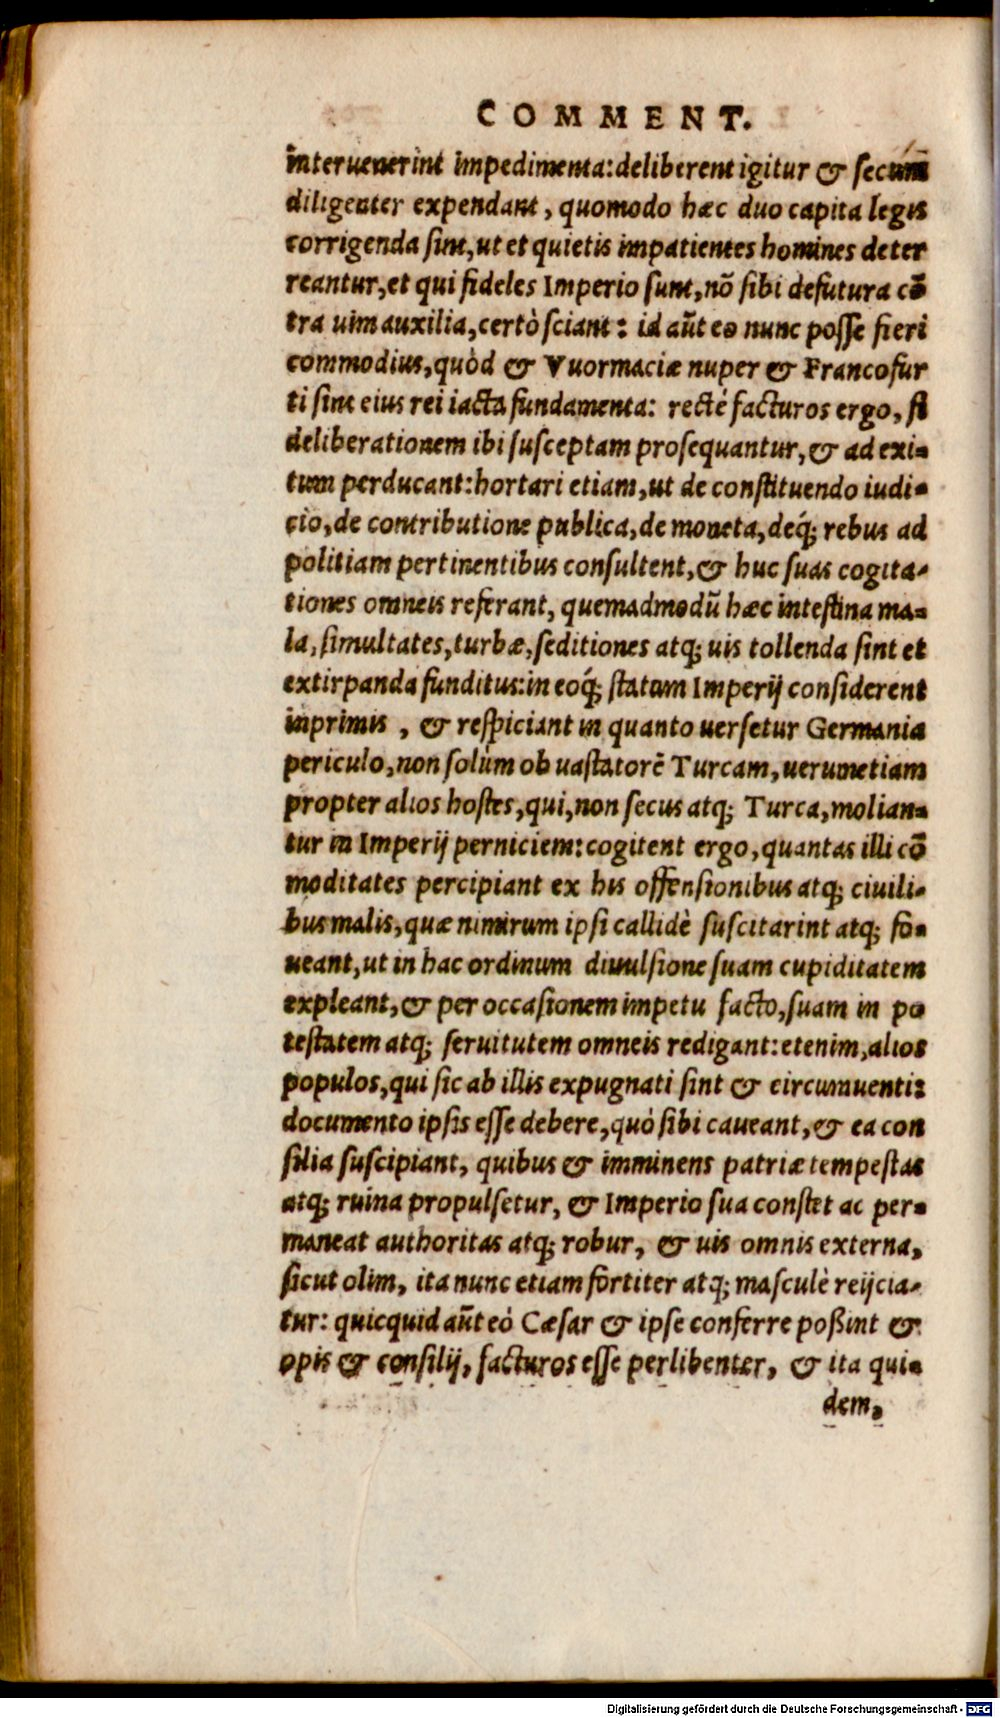 COMMENT.
interuenerint impedimenta: deliberent igitur & secum
diligenter expendant, quomodo hæc duo capita legis
corrigenda sint, ut et quietis impatientes homines deter
reantur, et qui fideles Imperio sunt, nõ sibi defutura cõ
tra uim auxilia, certò sciant: id aũt eo nunc posse fieri
commodius, quòd & Vuormaciæ nuper & Francofur
ti sint eius rei iacta fundamenta: rectè facturos ergo, si
deliberationem ibi susceptam prosequantur, & ad exi-
tum perducant: hortari etiam, ut de constituendo iudi-
cio, de contributione publica, de moneta, deq́; rebus ad
politiam pertinentibus consultent, & huc suas cogita-
tiones omneis referant, quemadmodũ hæc intestina ma-
la, simultates, turbæ, seditiones atq; uis tollenda sint et
extirpanda funditus: in eoq́; statum Imperij considerent
inprimis, & respiciant in quanto uersetur Germania
periculo, non solùm ob uastatorẽ Turcam, uerumetiam
propter alios hostes, qui, non secus atq; Turca, molian-
tur in Imperij perniciem: cogitent ergo, quantas illi cõ
moditates percipiant ex his offensionibus atq; ciuili-
bus malis, quæ nimirum ipsi callidè suscitarint atq; fo-
ueant, ut in hac ordinum diuulsione suam cupiditatem
expleant, & per occasionem impetu facto, suam in po
testatem atq; seruitutem omneis redigant: etenim, alios
populos, qui sic ab illis expugnati sint & circumuenti:
documento ipsis esse debere, quò sibi caueant, & ea con
silia suscipiant, quibus & imminens patriæ tempestas
atq; ruina propulsetur, & Imperio sua constet ac per-
maneat authoritas atq; robur, & uis omnis externa,
sicut olim, ita nunc etiam fortiter atq; masculè reijcia-
tur: quicquid aũt eò Cæsar & ipse conferre poßint &
opis & consilij, facturos esse perlibenter, & ita qui-
dem,
Digitalisierung gefördert durch die Deutsche Forschungsgemeinschaft - DFG